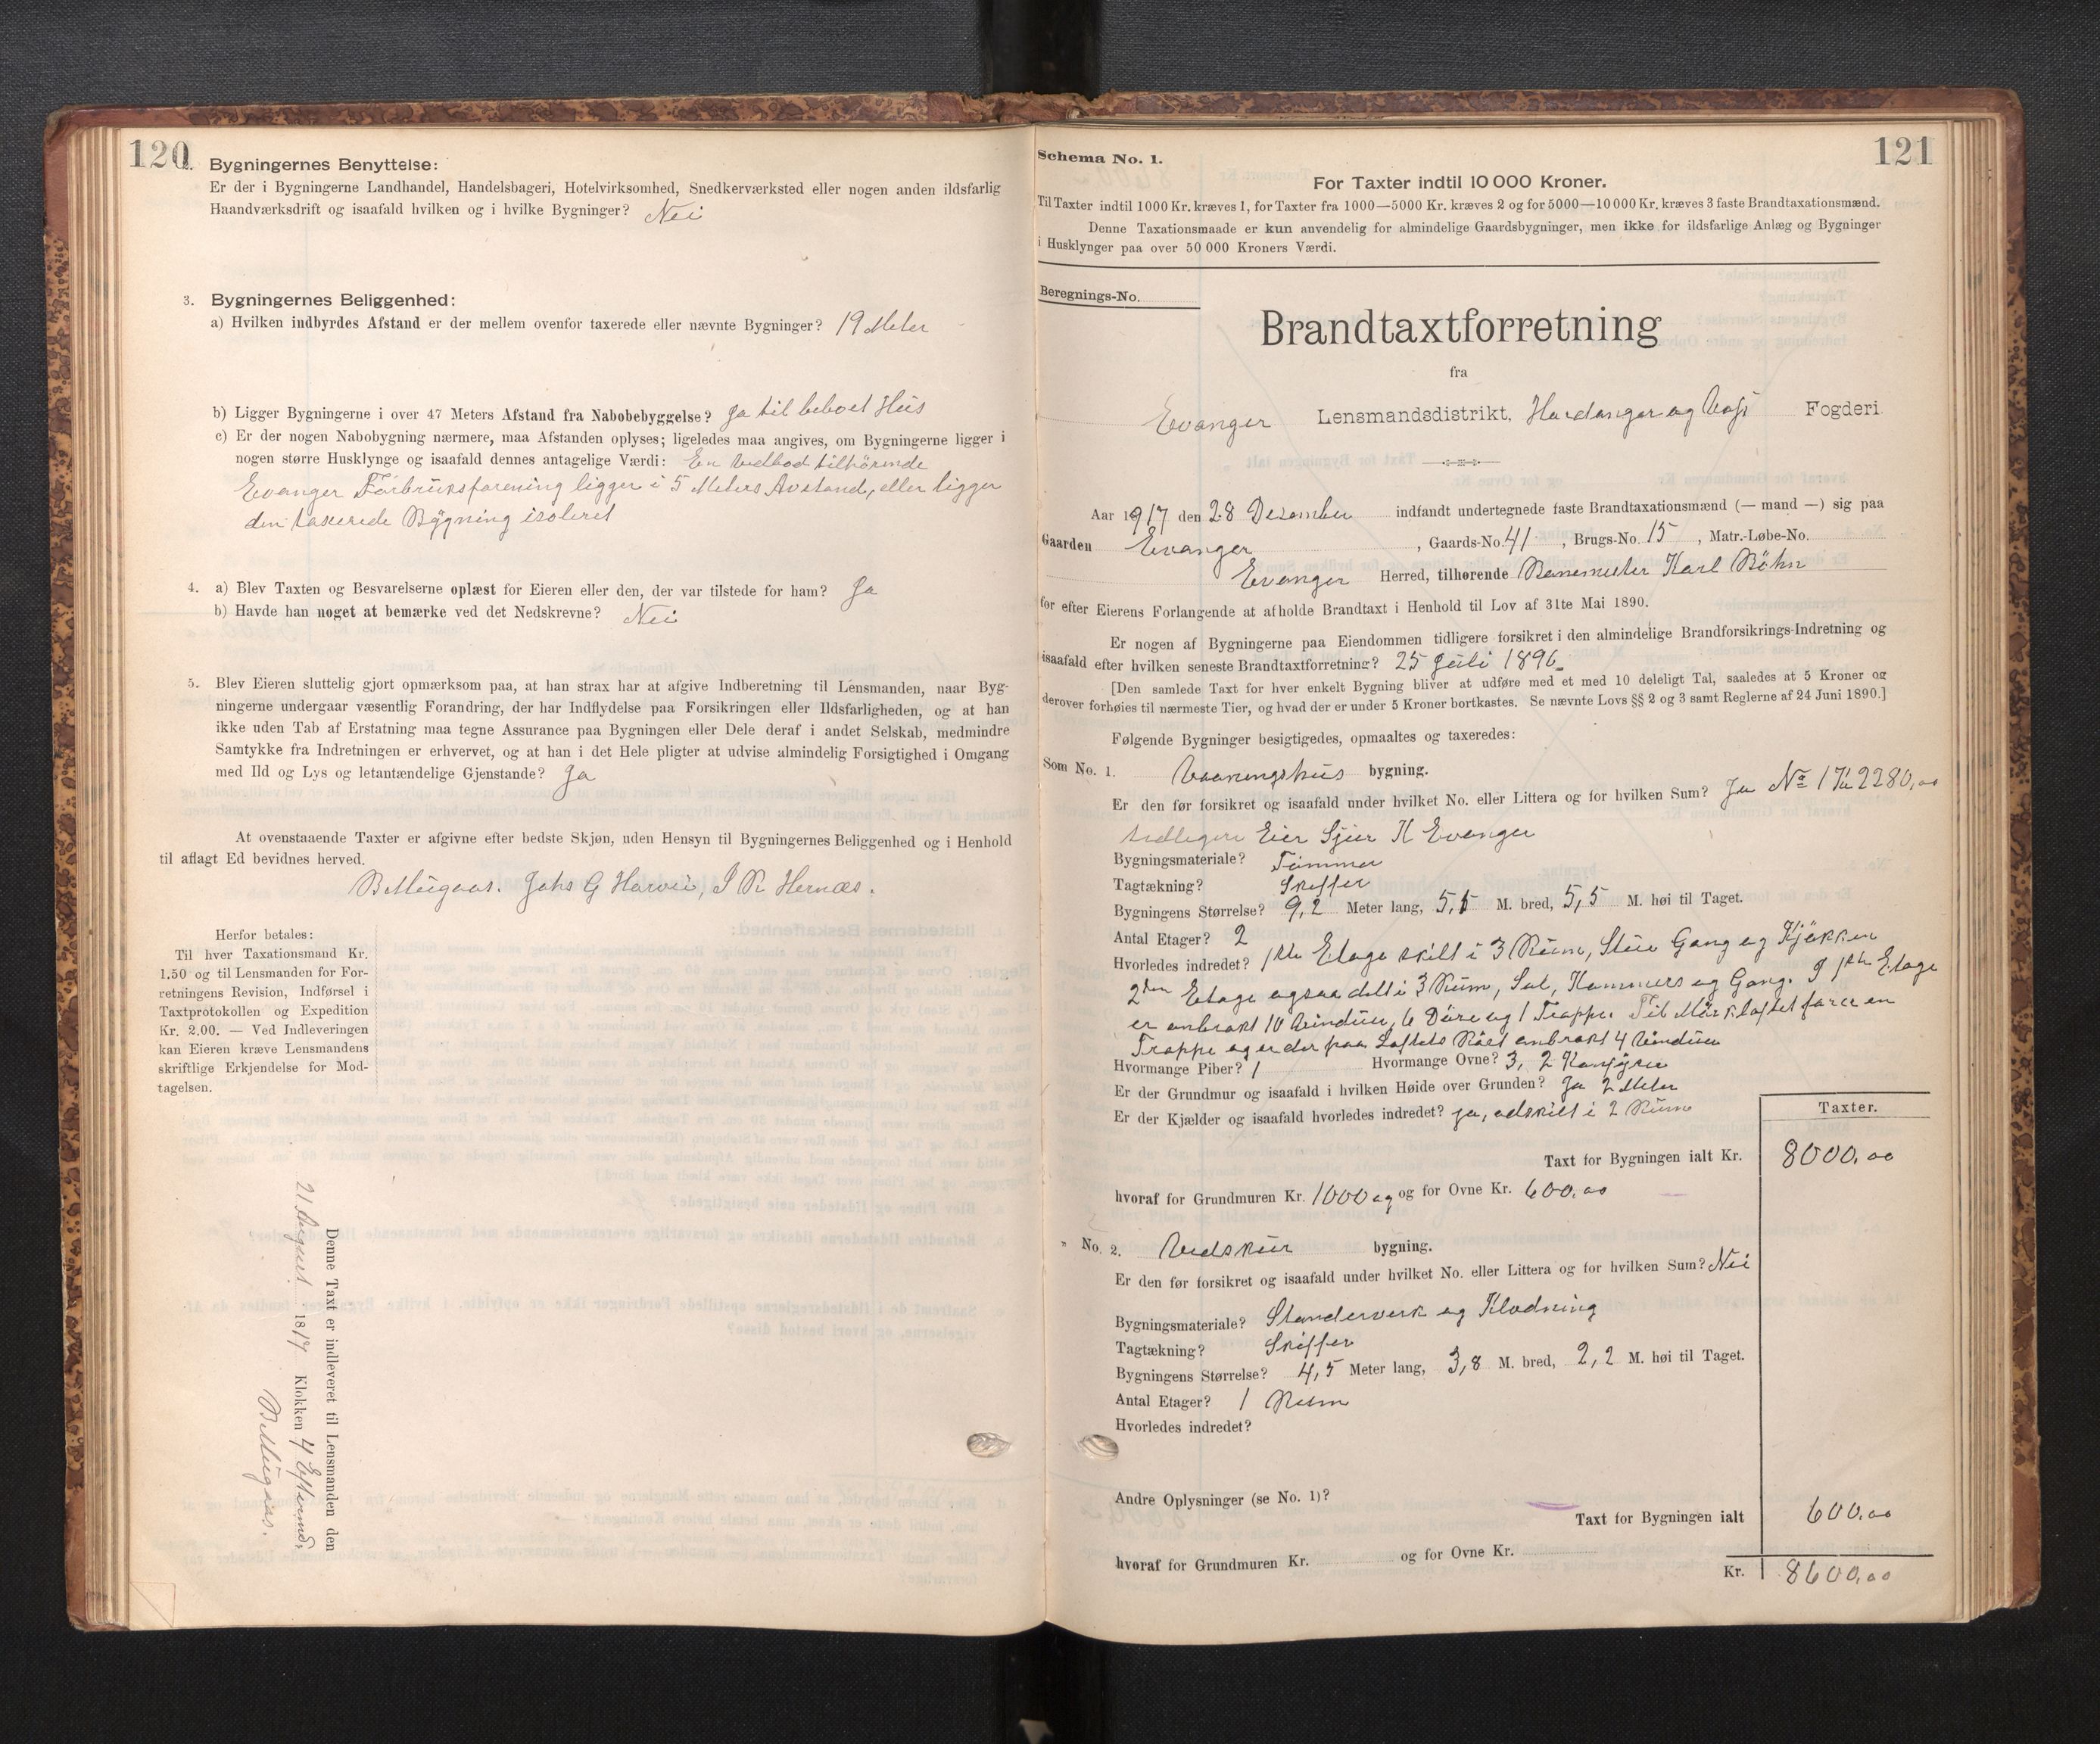 120
2. Bygningernes Benyttelse:
Er der i Bygningerne Landhandel, Handelsbageri, Hotelvirksomhed, Snedkerværksted eller nogen anden ildsfarlig
Haandværksdrift og isaafald hvilken og i hvilke Bygninger? Nei
3. Bygningernes Beliggenhed:
a) Hvilken indbyrdes Afstand er der mellem ovenfor taxerede eller nævnte Bygninger? 19 Meter
b) Ligger Bygningerne i over 47 Meters Afstand fra Nabobebyggelse? Ja til beboet Hus
c) Er der nogen Nabobygning nærmere, maa Afstanden oplyses; ligeledes maa angives, om Bygningerne ligger i
nogen større Husklynge og isaafald dennes antagelige Værdi: En Vedbod tilhörende
Evanger Forbruksforening ligger i 5 Meters Avstand, eller ligger
den taxerede Bygning isoleret
4. a) Blev Taxten og Besvarelserne oplæst for Eieren eller den, der var tilstede for ham? Ja
b) Havde han noget at bemærke ved det Nedskrevne? Nei
5. Blev Eieren sluttelig gjort opmærksom paa, at han strax har at afgive Indberetning til Lensmanden, naar Byg-
ningerne undergaar væsentlig Forandring, der har Indflydelse paa Forsikringen eller Ildsfarligheden, og at han
ikke uden Tab af Erstatning maa tegne Assurance paa Bygningen eller Dele deraf i andet Selskab, medmindre
Samtykke fra Indretningen er erhvervet, og at han i det Hele pligter at udvise almindelig Forsigtighed i Omgang
med Ild og Lys og letantændelige Gjenstande? Ja
At ovenstaaende Taxter er afgivne efter bedste Skjøn, uden Hensyn til Bygningernes Beliggenhed og i Henhold
til aflagt Ed bevidnes herved.
B Mugaas. Johs G Horvei, I K Hernæs.
Herfor betales:
Til hver Taxationsmand Kr.
1.50 og til Lensmanden for For-
retningens Revision, Indførsel i
Taxtprotokollen og Expedition
Kr. 2.00. — Ved Indleveringen
kan Eieren kræve Lensmandens
skriftlige Erkjendelse for Mod-
tagelsen.
Denne Taxt er indleveret til Lensmanden den
21 August 1817 Klokken 4 Eftermd.
B Mugaas.
121
Schema No. 1.
For Taxter indtil 10 000 Kroner.
Til Taxter indtil 1000 Kr. kræves 1, for Taxter fra 1000—5000 Kr. kræves 2 og for 5000—10 000 Kr. kræves 3 faste Brandtaxationsmænd.
Denne Taxationsmaade er kun anvendelig for almindelige Gaardsbygninger, men ikke for ildsfarlige Anlæg og Bygninger
i Husklynger paa over 50 000 Kroners Værdi.
Beregnings-No.
Brandtaxtforretning
fra
Evanger Lensmandsdistrikt, Hardanger og Voss Fogderi
Aar 1917 den 28 Desember indfandt undertegnede faste Brandtaxationsmænd (— mand —) sig paa
Gaarden Evanger, Gaards-No. 41, Brugs-No. 15, Matr.-Løbe-No.
Evanger Herred, tilhørende Banemester Karl Böhn
for efter Eierens Forlangende at afholde Brandtaxt i Henhold til Lov af 31te Mai 1890.
Er nogen af Bygningerne paa Eiendommen tidligere forsikret i den almindelige Brandforsikrings-Indretning og
isaafald efter hvilken seneste Brandtaxtforretning? 25 Juli 1896
[Den samlede Taxt for hver enkelt Bygning bliver at udføre med et med 10 deleligt Tal, saaledes at 5 Kroner og
derover forhøies til nærmeste Tier, og hvad der er under 5 Kroner bortkastes. Se nævnte Lovs §§ 2 og 3 samt Reglerne af 24 Juni 1890.]
Følgende Bygninger besigtigedes, opmaaltes og taxeredes:
Som No. 1. Vaaningshus bygning.
Er den før forsikret og isaafald under hvilket No. eller Littera og for hvilken Sum? Ja No 176 2280,00
tidligere Eier Sjur K Evanger
Bygningsmateriale? Tömmer
Tagtækning? Skiffer
Bygningens Størrelse? 9,2 Meter lang, 5,5 M. bred, 5,5 M. høi til Taget.
Antal Etager? 2
Hvorledes indredet? 1ste Etage skilt i 3 Rum, Stue Gang og Kjøkken
2den Etage ogsaa delt i 3 Rum, Sal, Kammers og Gang. I 1ste Etage
er anbrakt 10 Vinduer, 6 Döre og 1 Trappe. Til Mörkloftet förer en
Trappe og er der paa Loftets Röst anbrakt 4 Vinduer
Hvormange Piber? 1 Hvormange Ovne? 3, 2 Komfyrer
Er der Grundmur og isaafald i hvilken Høide over Grunden? Ja 2 Meter
Er der Kjælder og isaafald hvorledes indredet? ja, adskilt i 2 Rum
Taxter.
Taxt for Bygningen ialt Kr. 8000,00
hvoraf for Grundmuren Kr. 1000 og og for Ovne Kr. 600,00
" No. 2. Vedskur bygning.
Er den før forsikret og isaafald under hvilket No. eller Littera og for hvilken Sum? Nei
Bygningsmateriale? Standerverk og Klædning
Tagtækning? Skiffer
Bygningens Størrelse? 4,5 Meter lang, 3,8 M. bred, 2,2 M. høi til Taget.
Antal Etager? 1 Rum
Hvorledes indredet?
Andre Oplysninger (se No. 1)?
Taxt for Bygningen ialt 600,00
hvoraf for Grundmuren Kr. og for Ovne Kr.
Kr. 8600,00